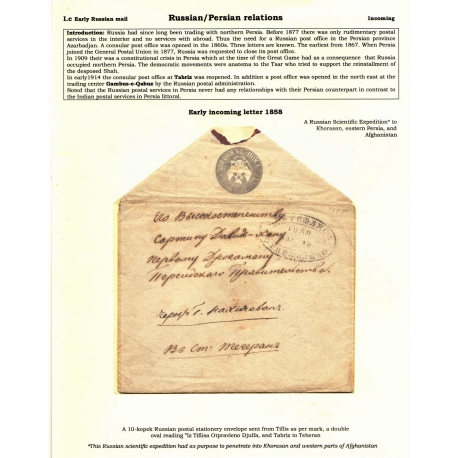 I.c Early Russian mail
Russian/Persian relations
Incoming
Introduction: Russia had since long been trading with northern Persia. Before 1877 there was only rudimentary postal
services in the interior and no services with abroad. Thus the need for a Russian post office in the Persian province
Azarbadjan. A consular post office was opened in the 1860s. Three letters are known. The earliest from 1867. When Persia
joined the General Postal Union in 1877, Russia was requested to close its post office.
In 1909 their was a constitutional crisis in Persia which at the time of the Great Game had as a consequence that Russia
occupied northern Persia. The democratic movements were anatema to the Tsar who tried to support the reinstallment of
the desposed Shah.
In early1914 the consular post office at Tabriz was reopened. In addition a post office was opened in the north east at the
trading center Gambus-e-Qabus by the Russian postal administration.
Noted that the Russian postal services in Persia never had any relationships with their Persian counterpart in contrast to
the Indian postal services in Persia littoral.
Early incoming letter 1858
A Russian Scientific Expedition* to
Khorasan, eastern Persia, and
Afghanistan
Его Высокостепенству
Сартипу Давид-Хану
Первому Драгоману
Персидскаго Правительства.
чрезъ Г. Нахичевань.
Въ Ст: Тегеранъ
1858
A 10-kopek Russian postal stationery envelope sent from Tiflis as per mark, a double
oval reading "iz Tiflisa Otpravleno Djulfa, and Tabriz to Teheran
*This Russian scientific expedition had as purpose to penetrate into Khorasan and western parts of Afghanistan